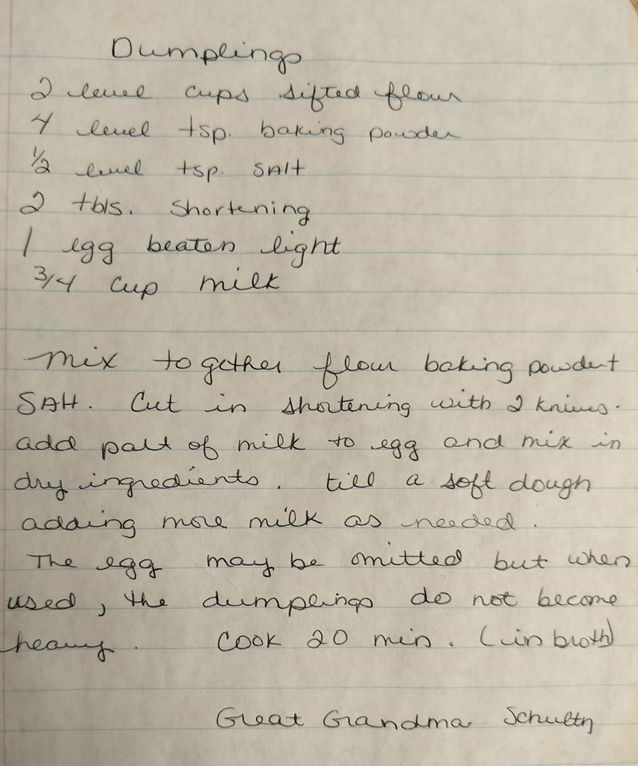 Dumplings
2 level cups sifted flour
4 level tsp. baking powder
1/2 level tsp. SAlt
2 tbls. shortening
1 egg beaten light
3/4 cup milk
mix together flour baking powder +
SAlt. Cut in shortening with 2 knives.
add part of milk to egg and mix in
dry ingredients. till a soft dough
adding more milk as needed.
The egg may be omitted but when
used, the dumplings do not become
heavy. COOK 20 min. (in broth)
Great Grandma